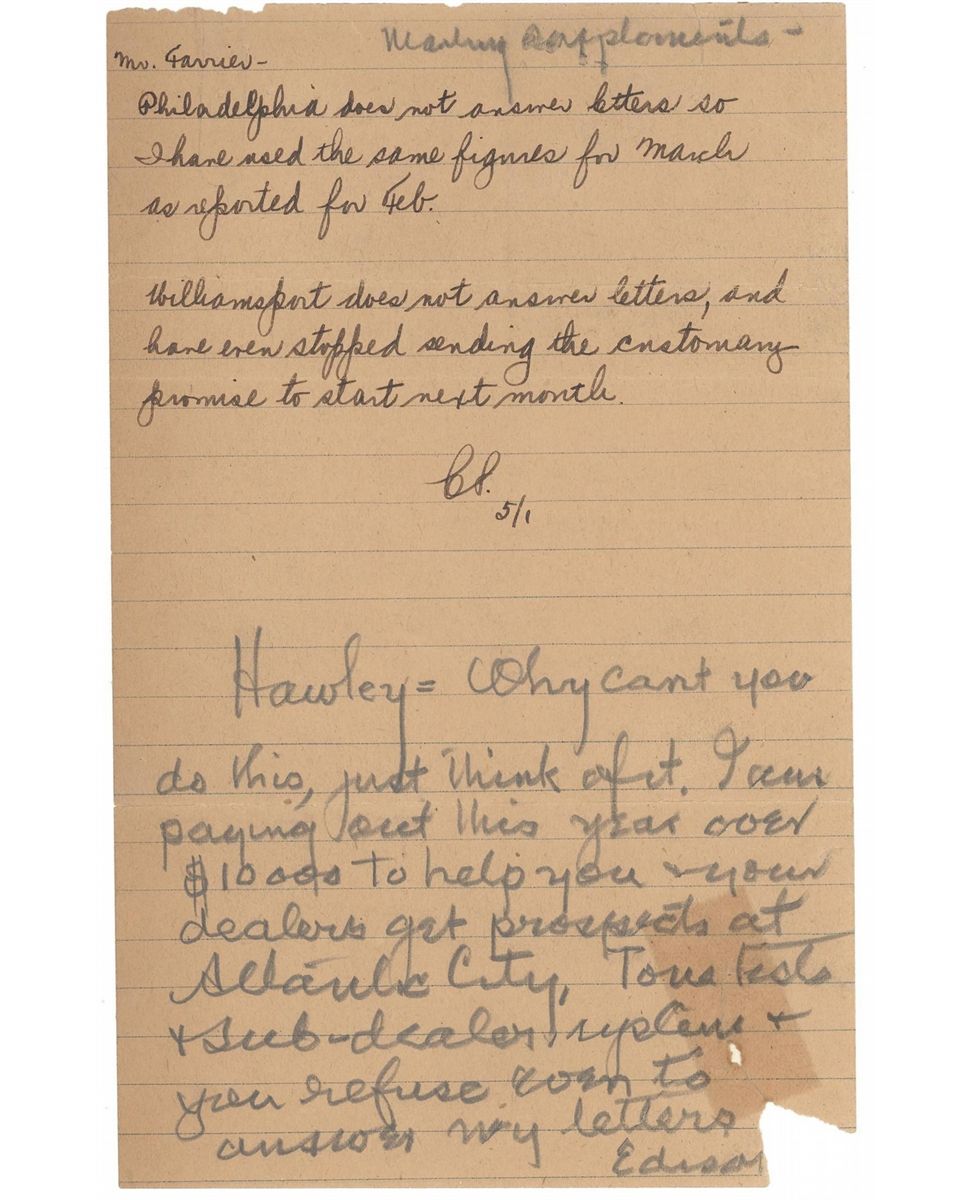 Mr. Farrier-
Philadelphia does not answer letters so
I have used the same figures for March
as reported for Feb.
Williamsport does not answer letters, and
have even stopped sending the customary
promise to start next month.
5/1
Hawley = Why cant you
do this, just think of it. I am
paying out this year over
$10000 to help you + your
dealers get prospects at
Atlantic City, Tone Tests
+ sub-dealer system +
you refuse even to
answer my letters
Edison